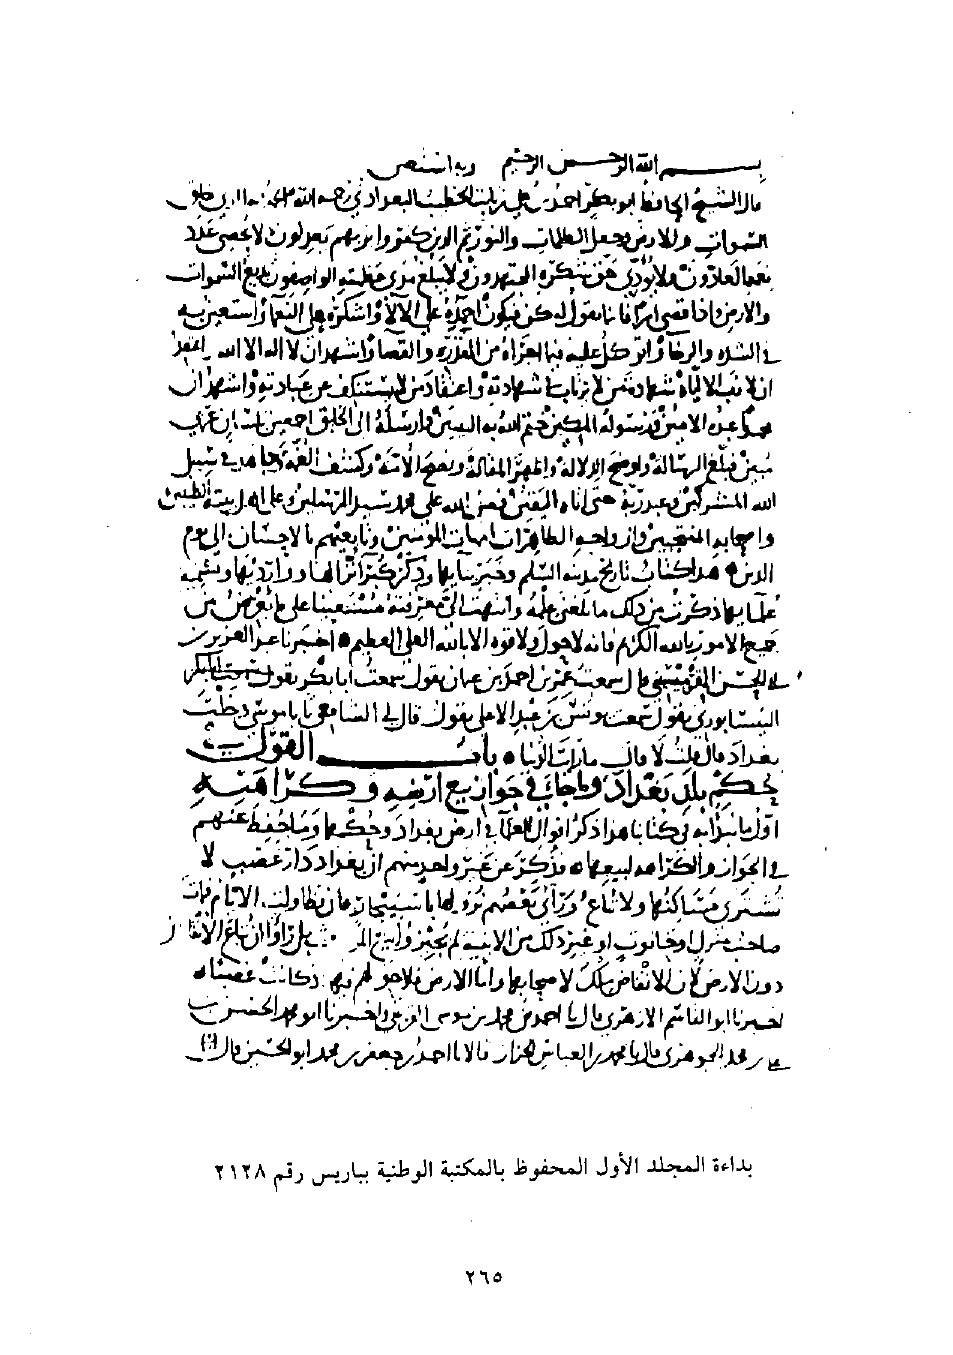 بسم الله الرحمن الرحيم وبه استعين
قال الشيخ الحافظ ابو بكر احمد بن علي بن ثابت الخطيب البغدادي رحمه الله الحمد لله الذي خلق
السموات والارض وجعل الظلمات والنور ثم الذين كفروا بربهم يعدلون لا يحصي عدد
نعمه العادون ولا يؤدي حق شكره المجتهدون ولا يبلغ مدى عظمته الواصفون بديع السموات
والارض واذا قضى امرا فانما يقول له كن فيكون احمده على الآلاء واشكره على النعماء واستعين به
في الشدة والرخاء واتوكل عليه فيما اجراه من القدر والقضاء واشهد ان لا اله الا الله واعتقد
ان لا رب الا اياه شهادة من لا يرتاب في شهادته واعتقاد من لا يستنكف عن عبادته واشهد ان
محمدا عبده الامين ورسوله المكين ختم الله به النبيين وارسله الى الخلق اجمعين بلسان عربي
مبين فبلغ الرسالة واوضح الدلالة واظهر المقالة ونصح الامة وكشف الغمة وجاهد في سبيل
الله المشركين وعبد ربه حتى اتاه اليقين فصلى الله على محمد سيد المرسلين وعلى اهل بيته الطيبين
واصحابه المنتجبين وازواجه الطاهرات امهات المؤمنين وتابعيهم بالاحسان الى يوم
الدين هذا كتاب تاريخ مدينة السلم وخبر بنائها وذكر كبراء نزالها ووارديها وتسمية
علمائها ذكرت من ذلك ما بلغني علمه وانتهت الي معرفته مستعينا على ما يعرض من
جميع الامور بالله الكريم فانه لا حول ولا قوة الا بالله العلي العظيم اخبرنا عبد العزيز بن
علي الحسن القرميسيني قال سمعت عمر بن احمد بن عثمان يقول سمعت ابا بكر يقول
النيسابوري يقول سمعت يونس بن عبد الاعلى يقول قال لي الشافعي يا با موسى دخلت
بغداد قال قلت لا قال ما رايت الدنيا باب القول
في حكم بلد بغداد وما جاء في جواز بيع ارضه وكراهته
اول ما نبدأ به في كتابنا هذا ذكر اقوال العلماء في ارض بغداد وحكمها وما حفظ عنهم
في الجواز والكراهة لبيعها فذكر عن غير واحد منهم ان بغداد دار غصب لا
تشترى مساكنها ولا تباع ورأى بعضهم نزولها باستيجار فان تطاولت الايام فمات
صاحب منزل او حانوت او غير ذلك من الابنية لم يجيزوا بيع بل رأوا ان تباع الانقاض
دون الارض لان الانقاض ملك لاصحابها واما الارض فلا حق لهم فيها اذ كانت غصبا
اخبرنا ابو القاسم الازهري قال انا احمد بن محمد بن موسى القرشي واخبرنا ابو محمد الحسن بن
علي بن محمد الجوهري قال انا محمد بن العباس الخزاز قالا انا احمد بن جعفر بن محمد ابو الحسين قال
بداءة المجلد الأول المحفوظ بالمكتبة الوطنية بباريس رقم ٢١٢٨
٢٦٥